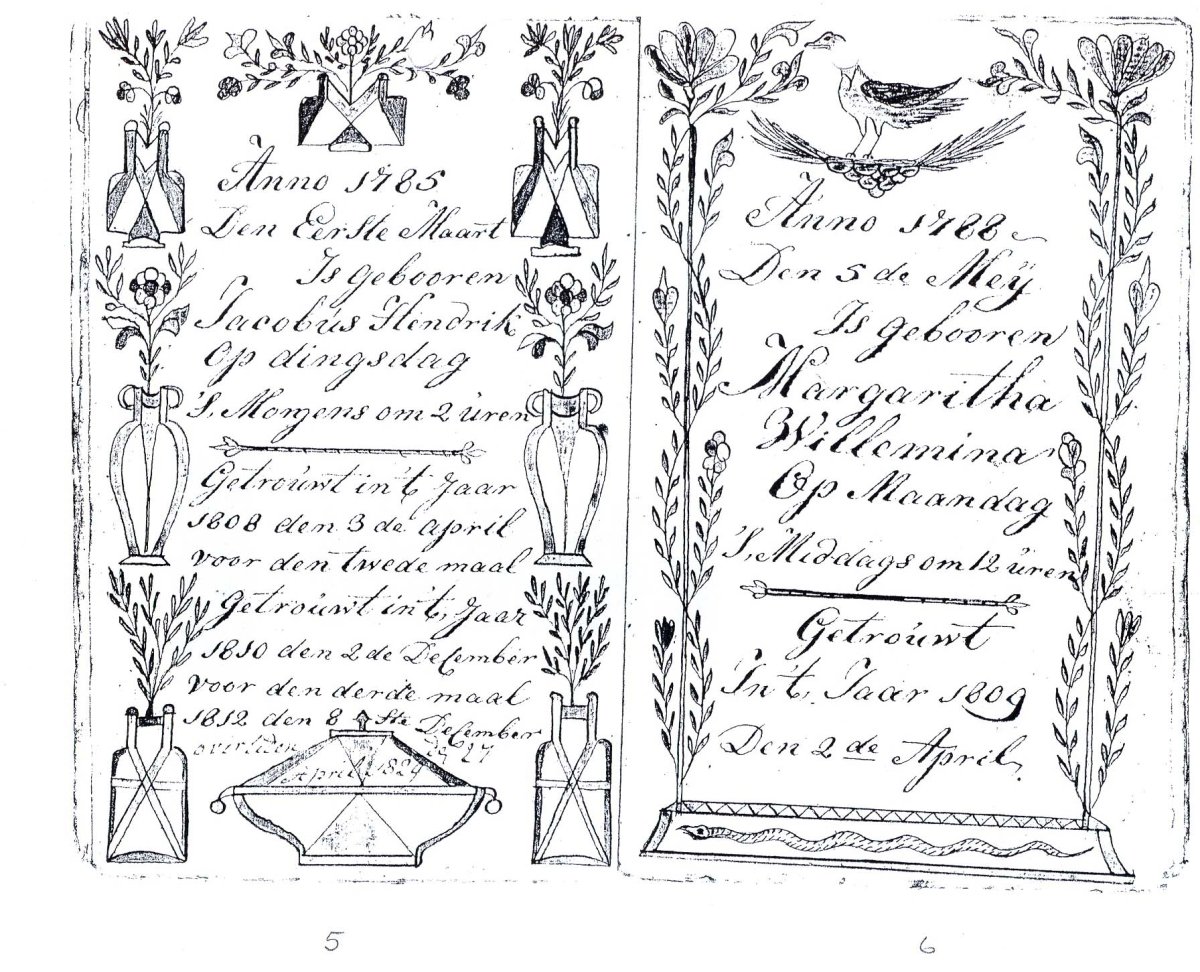 Anno 1785
Den Eerste Maart
Is gebooren
Jacobus Hendrik
Op dingsdag
'S, Morgens om 2 üren
Getroüwt in't Jaar
1808 den 3 de april
voor den twede maal
Getroüwt in't, Jaar
1810 den 2 de December
voor den derde maal
1812 den 8 ste December
overleden 27
April 1829
5
Anno 1788
Den 5 de Meÿ
Is gebooren
Margaritha
Willemina
Op Maandag
'S, Middags om 12 üren
Getroüwt
In t, Jaar 1809
Den 2 de April,
6